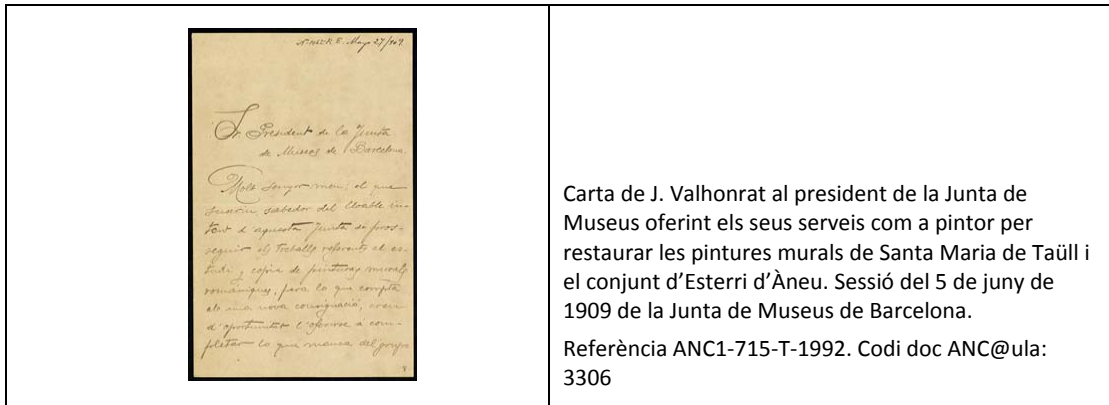 Nº 1662 R.E. Mayo 27/909.
Sr. President de la Junta
de Museus de Barcelona.
Molt senyor meu: el que
suscriu sabedor del lloable in-
tent d'aquesta Junta de pros-
seguir els treballs referents al es-
tudi y copia de pinturas murals
romaniques, para lo que compta
ab una nova consignació, creu
d'oportunitat l'oferirse à com-
pletar lo que manca del grupo
Carta de J. Valhonrat al president de la Junta de
Museus oferint els seus serveis com a pintor per
restaurar les pintures murals de Santa Maria de Taüll i
el conjunt d’Esterri d’Àneu. Sessió del 5 de juny de
1909 de la Junta de Museus de Barcelona.
Referència ANC1-715-T-1992. Codi doc ANC@ula:
3306